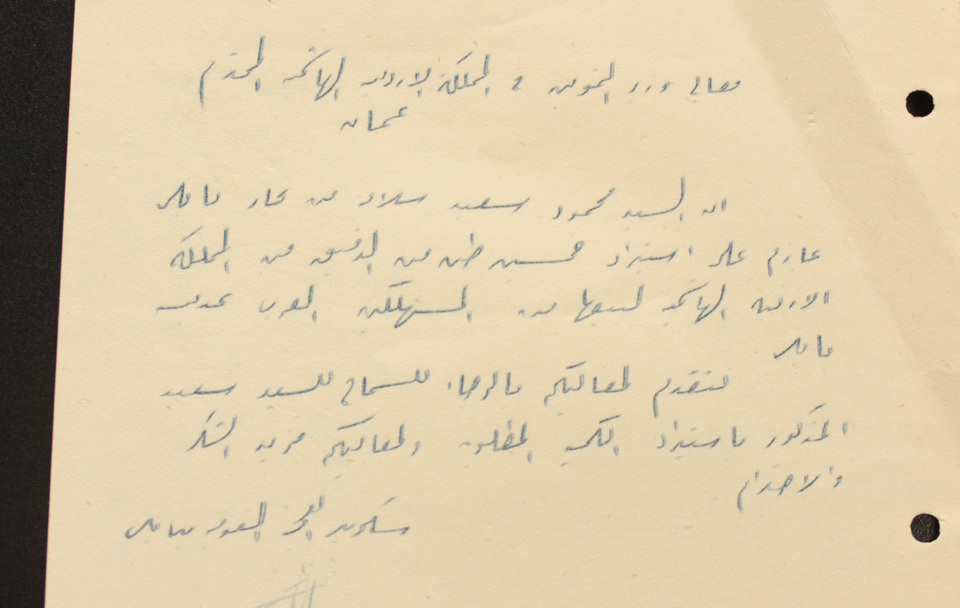 معالي وزير التموين في المملكة الاردنية الهاشمية المحترم
عمان
ان السيد محمود سعيد سلامه من تجار نابلس
عازم على استيراد خمسين طن من الدقيق من المملكة
الاردنية الهاشمية لبيعها من المستهلكين العرب بمدينة
نابلس
نتقدم لمعاليكم بالرجاء للسماح للسيد سعيد
المذكور باستيراد الكمية المطلوبة ولمعاليكم مزيد الشكر
والاحترام